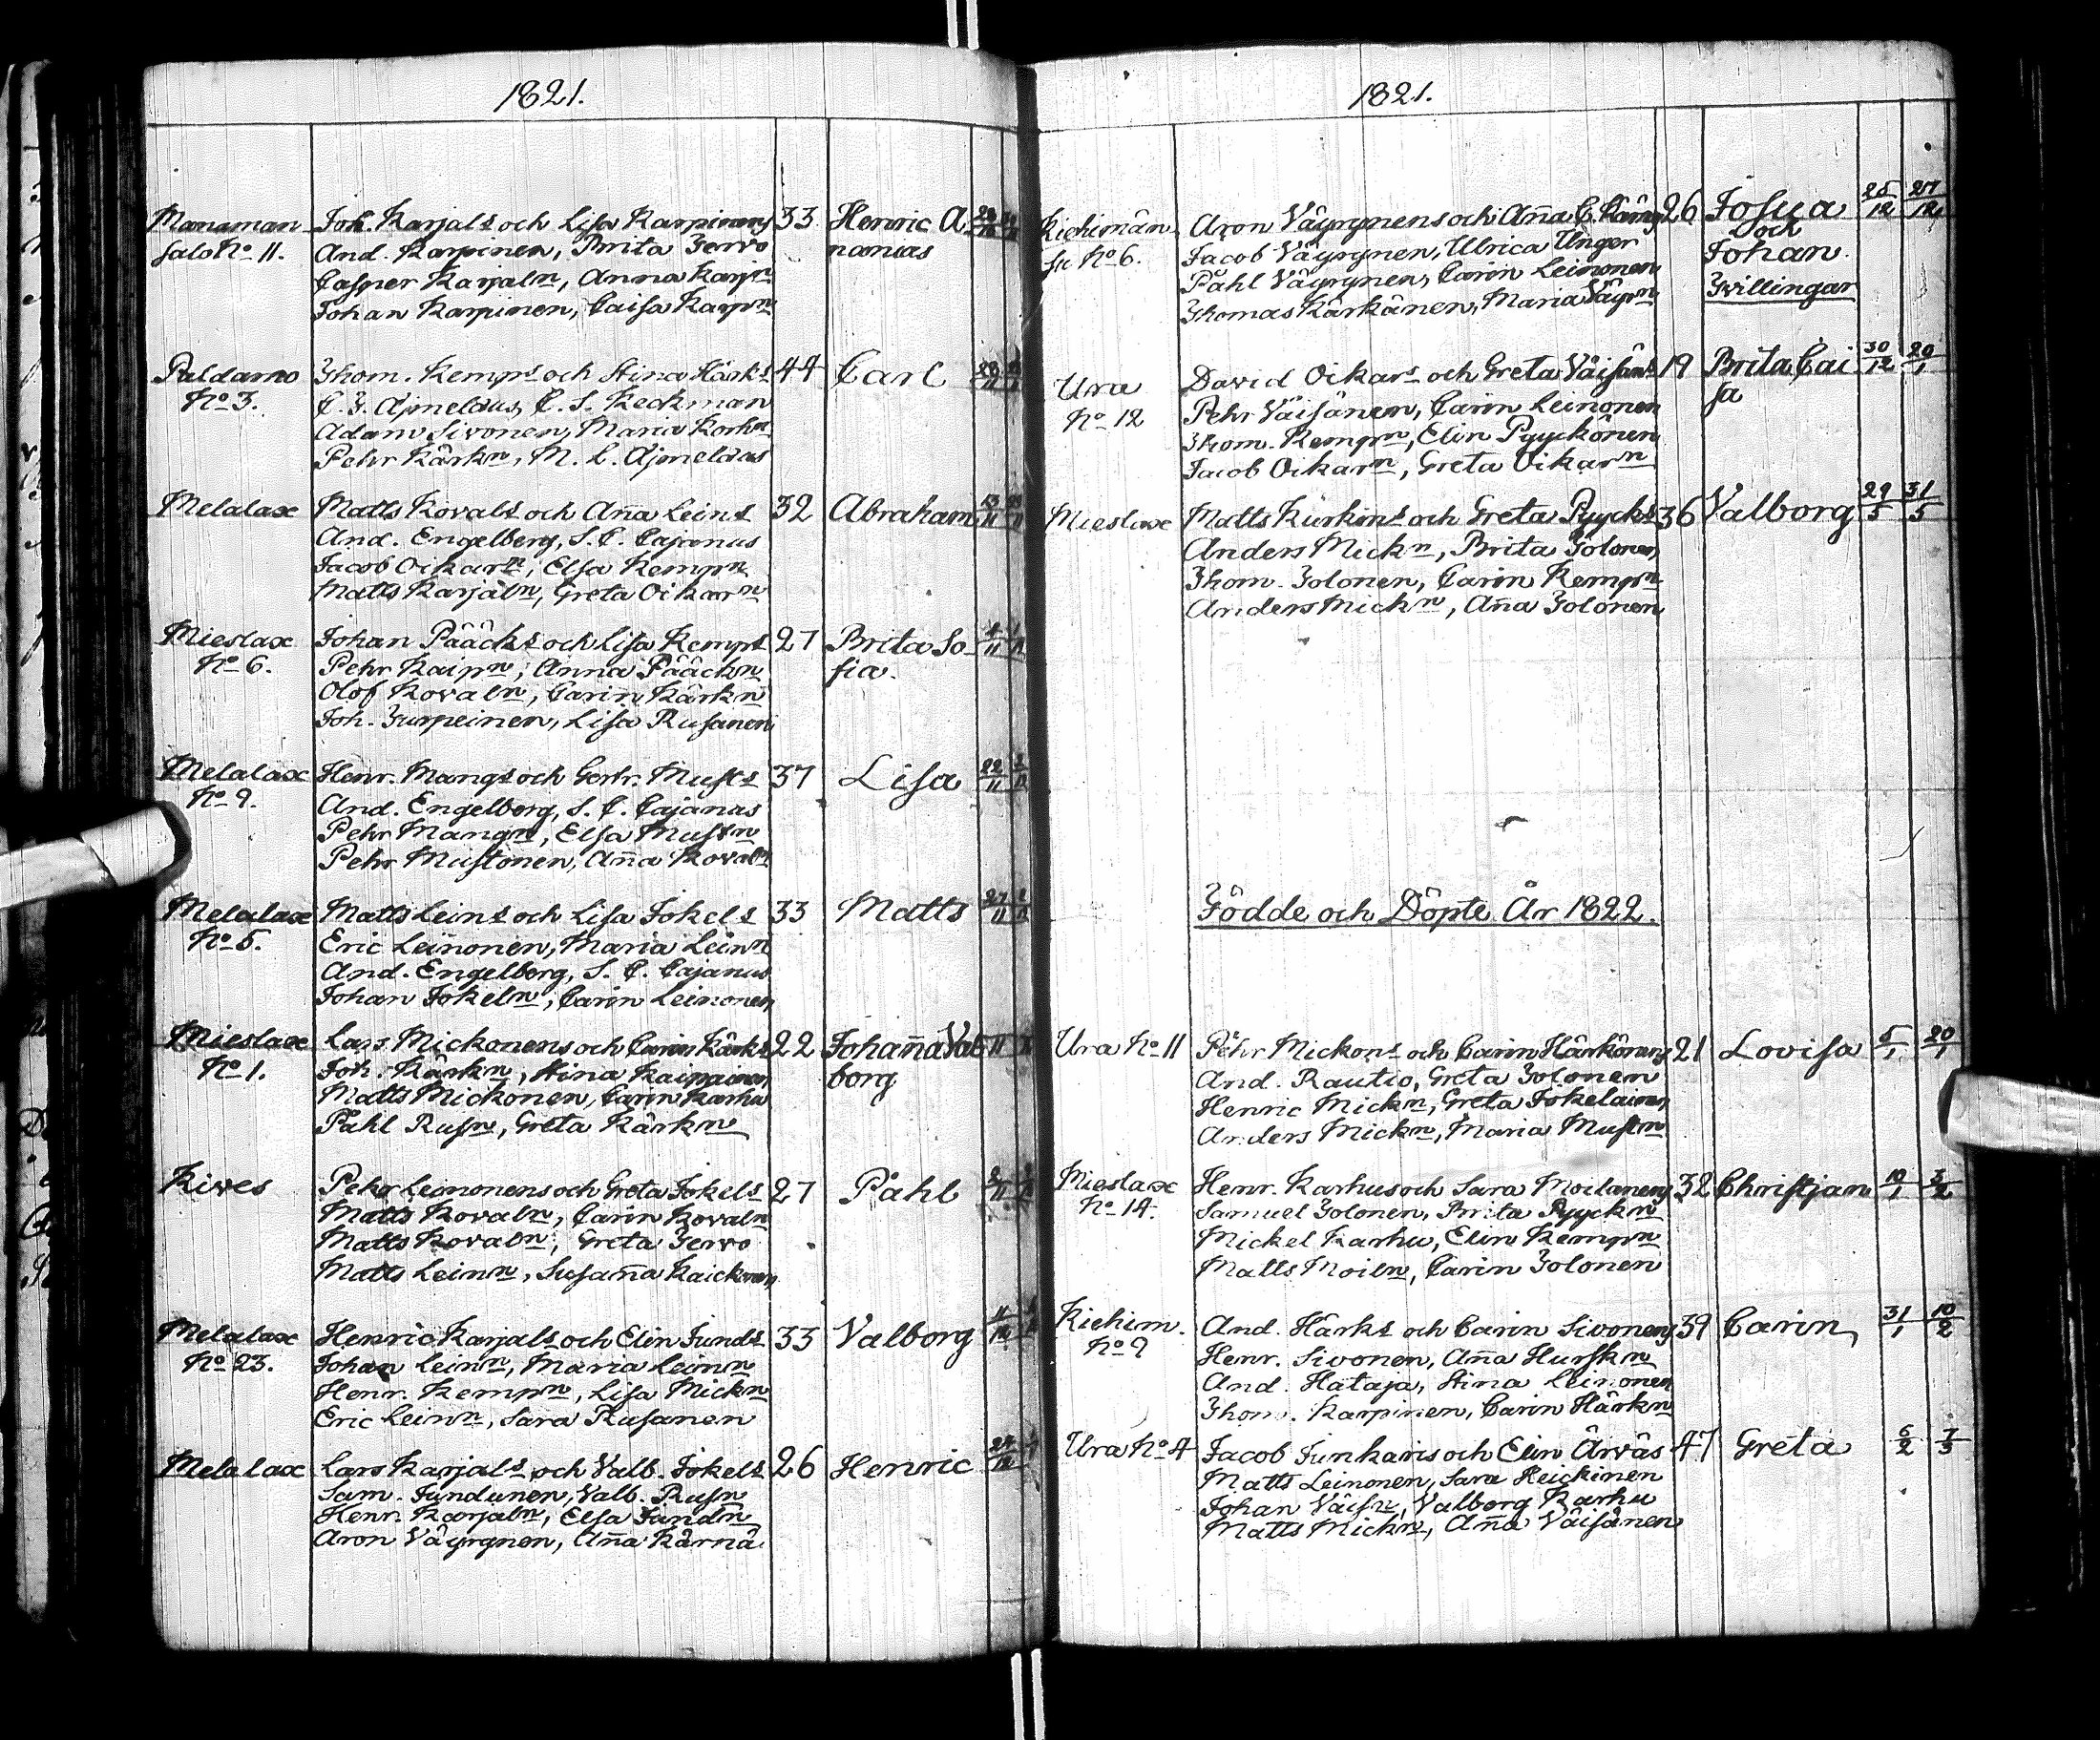 1821.
Manaman Joh. Karjal:s och Lisa Karpinens 33 Henric A
salo No 11. And. Karpinen, Brita Tervo nanias
Casper Karjal:n, Anna Karp:n
Johan Karpinen, Caisa Karp:n
Paldamo Thom. Kemp:s och Stina Härk:s 44 Carl
No 3. C. J. Ajmelaus, C. S. Keckman
Adam Sivonen, Maria Korh:n
Pehr Kärk:n, M. L. Ajmelaus
Melalax Matts Koval:s och Aña Lein:s 32 Abraham
And. Engelberg, S. C. Cajanus
Jacob Oikar:n, Elsa Kemp:n
Matts Karjal:n, Greta Oikar:n
Mieslax Johan Pääck:s och Lisa Kemp:s 27 Brita So
No 6. Pehr Kaip:n, Anna Pääck:n fia.
Olof Koval:n, Carin Kärk:n
Joh. Turpeinen, Lisa Rusanen
Melalax Henr. Mang:s och Gertr. Must:s 37 Lisa 22/11
No 9. And. Engelberg, S. C. Cajanus
Pehr Mang:n, Elsa Must:n
Pehr Mustonen, Aña Koval:n
Melalax Matts Lein:s och Lisa Jokel:s 33 Matts 27/11
No 5. Eric Leinonen, Maria Lein:n
And. Engelberg, S. C. Cajanus
Johan Jokel:n, Carin Leinonen
Mieslax Lars Mickonens och Carin Kärk:s 22 Johaña Val
No 1. Joh. Kärk:n, Stina Kaipainen borg
Matts Mickonen, Carin Karhu
Påhl Rus:n, Greta Kärk:n
Kives Pehr Leinonens och Greta Jokel:s 27 Påhl
Matts Koval:n, Carin Koval:n
Matts Koval:n, Greta Tervo
Matts Lein:n, Susaña Kaickonen
Melalax Henric Karjal:s och Elin Jund:s 33 Valborg 11/12
No 23. Johan Lein:n, Maria Lein:n
Henr. Kemp:n, Lisa Mick:n
Eric Lein:n, Sara Rusanen
Melalax Lars Karjal:s och Valb. Jokel:s 26 Henric
Sam. Jundunen, Valb. Rus:n
Henr. Karjal:n, Elsa Jund:n
Aron Väyrynen, Aña Kärnä
1821.
Kiehimän Aron Väyrynens och Aña C. 26 Josua 25/12 27/12
su No 6. Jacob Väyrynen, Ulrica Unger och
Påhl Väyrynen, Carin Leinonen Johan
Thomas Kärkänen, Maria Väyr:n Tvillingar
Ura David Oikar:s och Greta Väisän:s 19 Brita Cai 30/12 20/1
No 12 Pehr Väisänen, Carin Leinonen sa
Thom. Kemp:n, Elin Pyyckönen
Jacob Oikar:n, Greta Oikar:n
Mieslax Matts Kurkin:s och Greta Pyyck:s 36 Valborg 29/5 31/5
Anders Mick:n, Brita Tolonen
Thom. Tolonen, Carin Kemp:n
Anders Mick:n, Aña Tolonen
Födde och Döpte År 1822.
Ura No 11 Pehr Mickon:s och Carin Härkönens 21 Lovisa 5/1 20/1
And. Rautio, Greta Tolonen
Henric Mick:n, Greta Jokelainen
Anders Mick:n, Maria Must:n
Mieslax Henr. Karhus och Sara Moilanens 32 Christjan 10/1 3/2
No 14. Samuel Tolonen, Brita Pyyck:n
Mickel Karhu, Elin Kemp:n
Matts Moil:n, Carin Tolonen
Kiehim. And. Härk:s och Carin Sivonens 39 Carin 31/1 10/2
No 9 Henr. Sivonen, Aña Hursk:n
And. Hataja, Stina Leinonen
Thom. Karpinen, Carin Härk:n
Ura No 4 Jacob Junkaris och Elin Ärväs 47 Greta 6/2 7/3
Matts Leinonen, Sara Heickinen
Johan Väis:n, Valborg Karhu
Matts Mick:n, Aña Väisänen